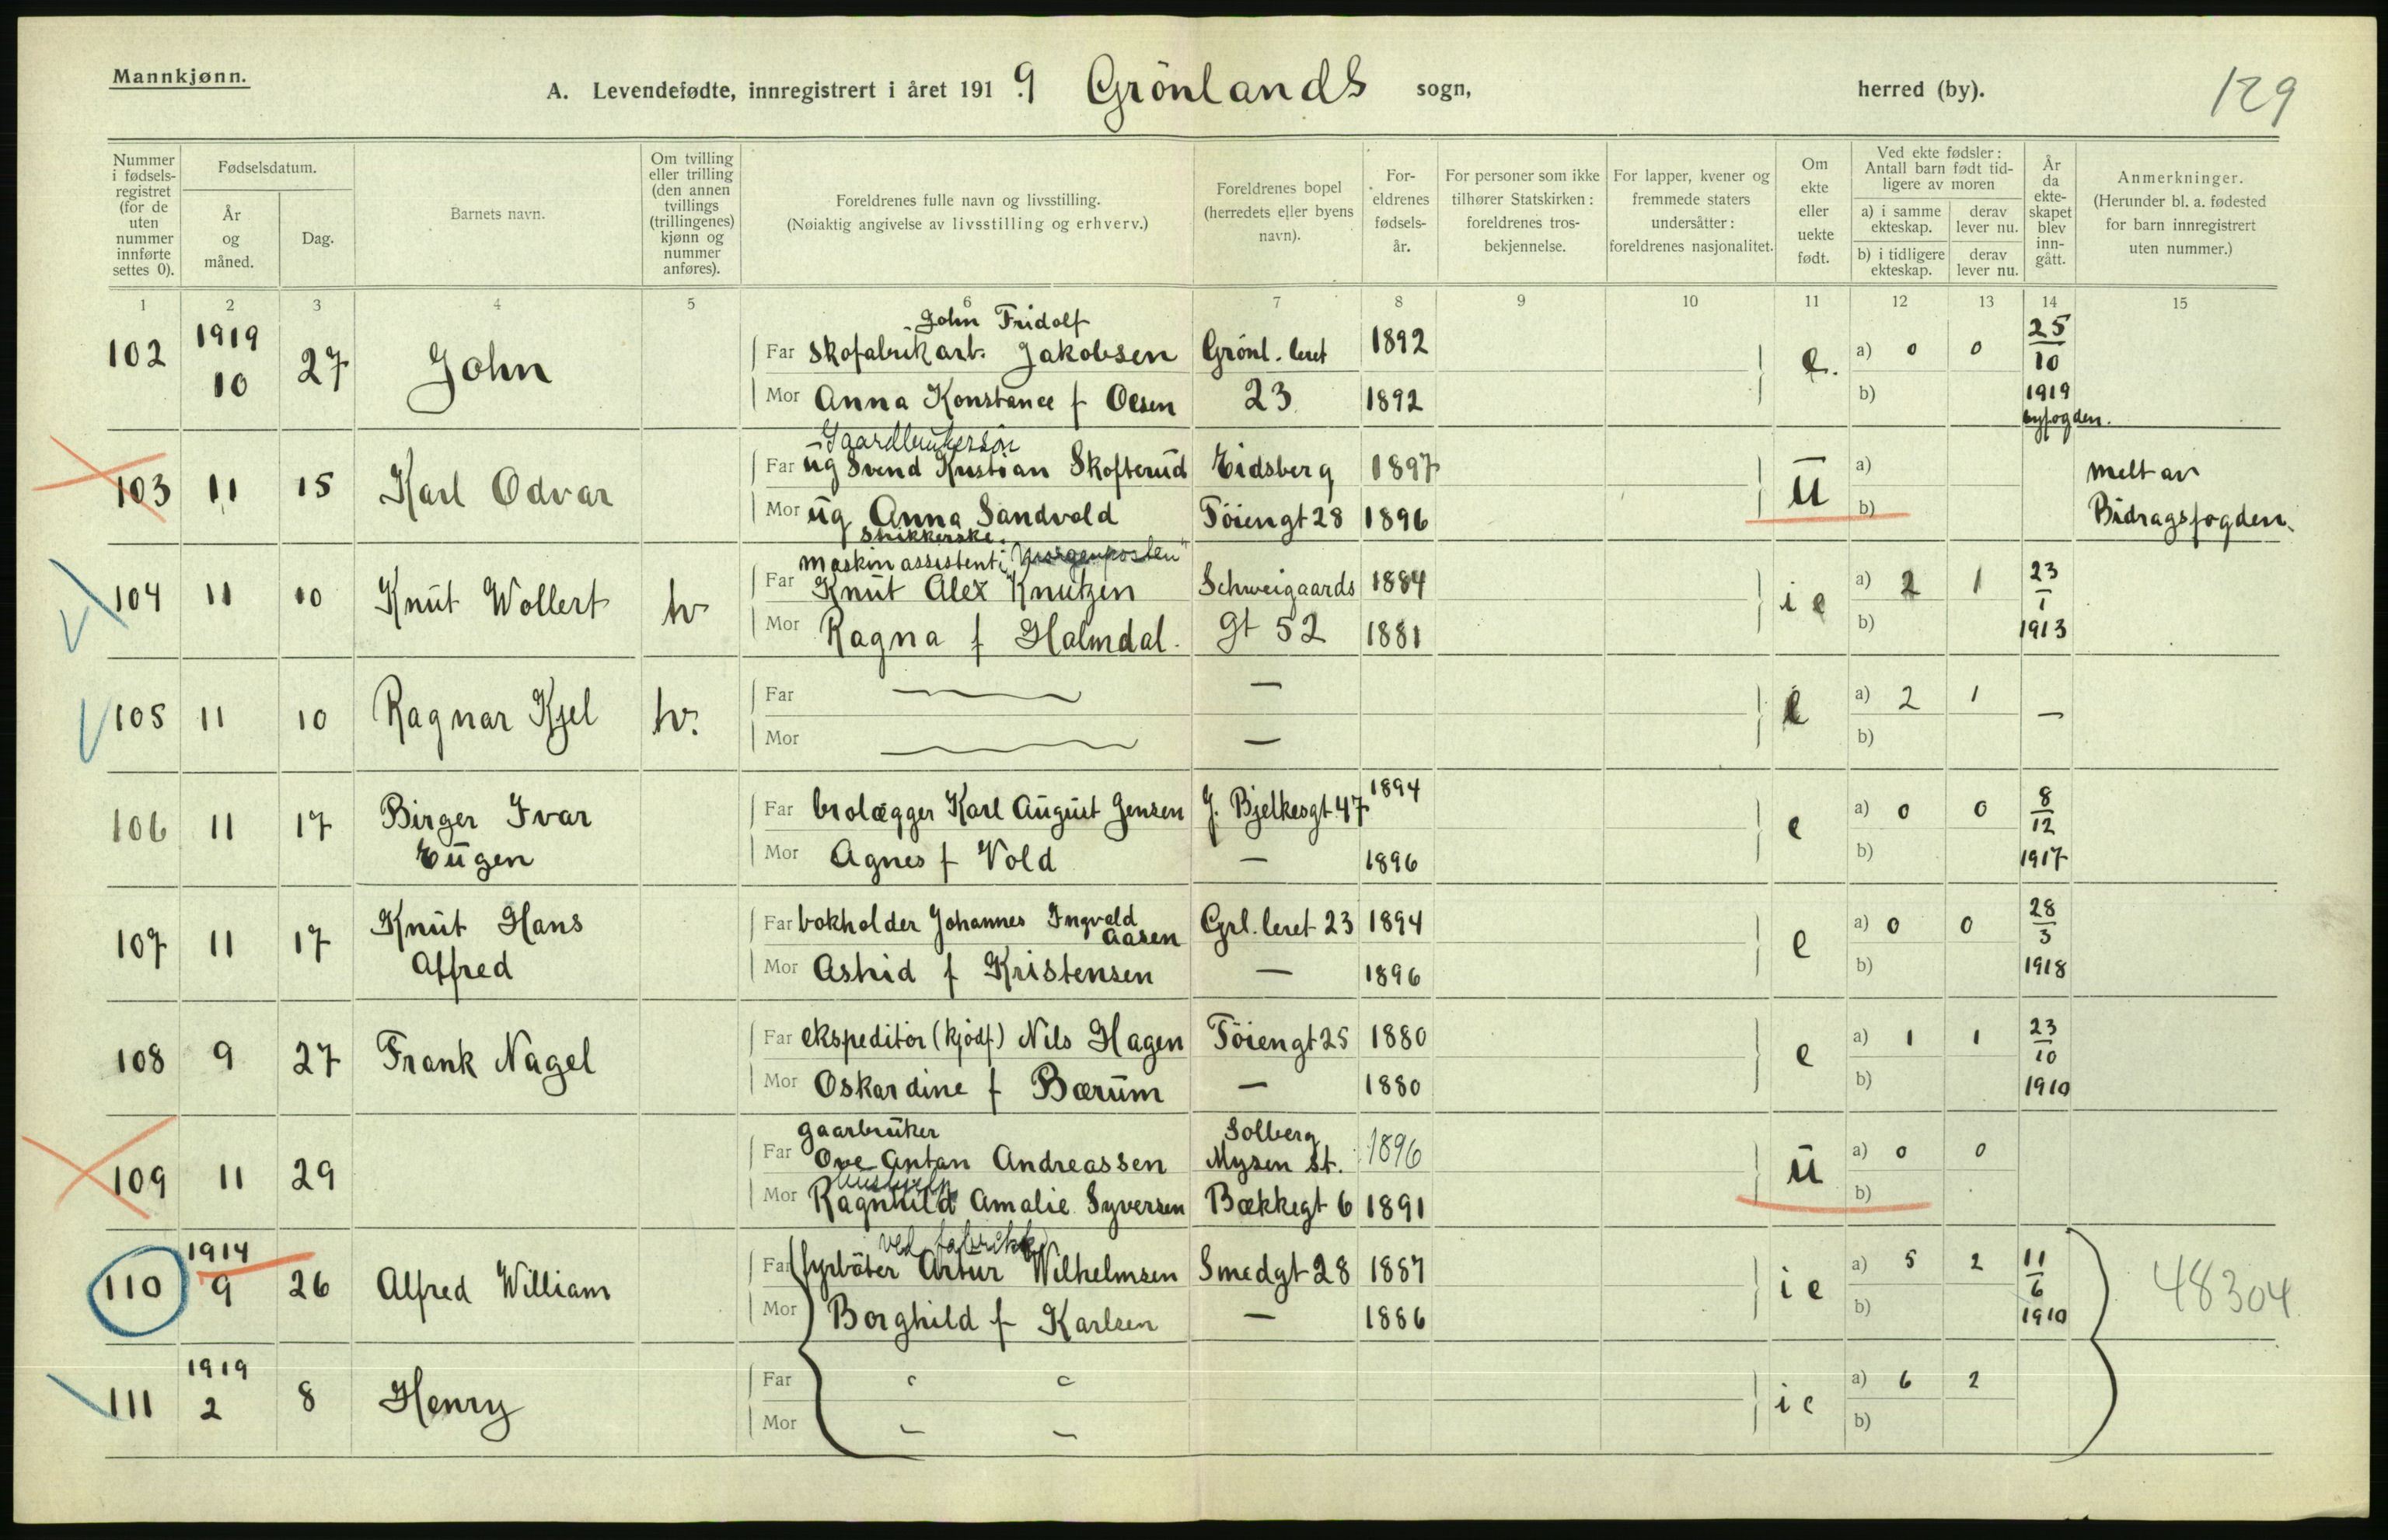 Mannkjønn.
A. Levendefødte, innregistrert i året 191 9 Grönlands sogn, herred (by). 129
Nummer i fødsels-registret (for de uten nummer innførte settes 0).
Fødselsdatum.
År og måned.
Dag.
Barnets navn.
Om tvilling eller trilling (den annen tvillings (trillingenes) kjønn og nummer anføres).
Foreldrenes fulle navn og livsstilling.
(Nøiaktig angivelse av livsstilling og erhverv.)
Foreldrenes bopel (herredets eller byens navn).
For-eldrenes fødsels-år.
For personer som ikke tilhører Statskirken: foreldrenes tros-bekjennelse.
For lapper, kvener og fremmede staters undersåtter: foreldrenes nasjonalitet.
Om ekte eller uekte født.
Ved ekte fødsler: Antall barn født tid-ligere av moren
a) i samme ekteskap. derav lever nu.
b) i tidligere ekteskap. derav lever nu.
År da ekte-skapet blev inn-gått.
Anmerkninger.
(Herunder bl. a. fødested for barn innregistrert uten nummer.)
1 2 3 4 5 6 7 8 9 10 11 12 13 14 15
John Fridolf
102 1919 10 27 John Far skofabrikarb. Jakobsen Grönl. leret 1892 e. a) 0 0 25/10
Mor Anna Konstance f Olsen 23 1892 b) 1919
byfogden.
Gaardbrukersön
103 11 15 Karl Odvar Far ug Svend Kristian Skofterud Eidsberg 1897 u a) melt av
Mor ug Anna Sandvold Töiengt 28 1896 b) Bidragsfogden.
strikkerske.
maskinassistent i "Morgenposten"
104 11 10 Knut Wollert tv Far Knut Alex Knutzen Schweigaards 1884 i e a) 2 1 23/1
Mor Ragna f Halmdal. gt 52 1881 b) 1913
105 11 10 Ragnar Kjel tv. Far — — e a) 2 1 —
Mor — — b)
106 11 17 Birger Ivar Far brolægger Karl August Jensen J. Bjelkesgt 47 1894 e a) 0 0 8/12
Eugen Mor Agnes f Vold — 1896 b) 1917
107 11 17 Knut Hans Far bokholder Johannes Ingvald Aasen Grl. leret 23 1894 e a) 0 0 28/3
Alfred Mor Astrid f Kristensen — 1896 b) 1918
108 9 27 Frank Nagel Far ekspeditör (kjödf) Nils Hagen Töiengt 25 1880 e a) 1 1 23/10
Mor Oskardine f Bærum — 1880 b) 1910
gaarbruker Solberg
109 11 29 Far Ove Antan Andreassen Mysen st. 1896 u a) 0 0
hushjelp
Mor Ragnhild Amalie Syversen Bækkegt 6 1891 b)
ved fabrikk
110 1914 9 26 Alfred William Far fyrböter Artur Wilhelmsen Smedgt 28 1887 i e a) 5 2 11/6 48304
Mor Borghild f Karlsen — 1886 b) 1910
111 1919 2 8 Henry Far i e a) 6 2
Mor — — b)